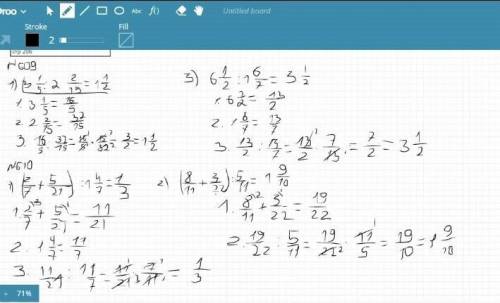 Stroke Fill Untitled board
2
№609
1) 3 1/5 : 2 2/15 = 1 1/2
1. 3 1/5 = 16/5
2. 2 2/15 = 32/15
3. 16/5 : 32/15 = 16/5 · 15/32 = 3/2 = 1 1/2
3) 6 1/2 : 1 6/7 = 3 1/2
2. 1 6/7 = 13/7
3. 13/2 : 13/7 = 13/2 · 7/13 = 7/2 = 3 1/2
№610
1) (2/7 + 5/21) : 1 4/7 = 1/3
1. 2/7 + 5/21 = 11/21
2. 1 4/7 = 11/7
3. 11/21 : 11/7 = 11/21 · 7/11 = 1/3
2) (8/11 + 3/22) : 5/11 = 1 9/10
1. 8/11 + 3/22 = 19/22
2. 19/22 : 5/11 = 19/22 · 11/5 = 19/10 = 1 9/10
71%